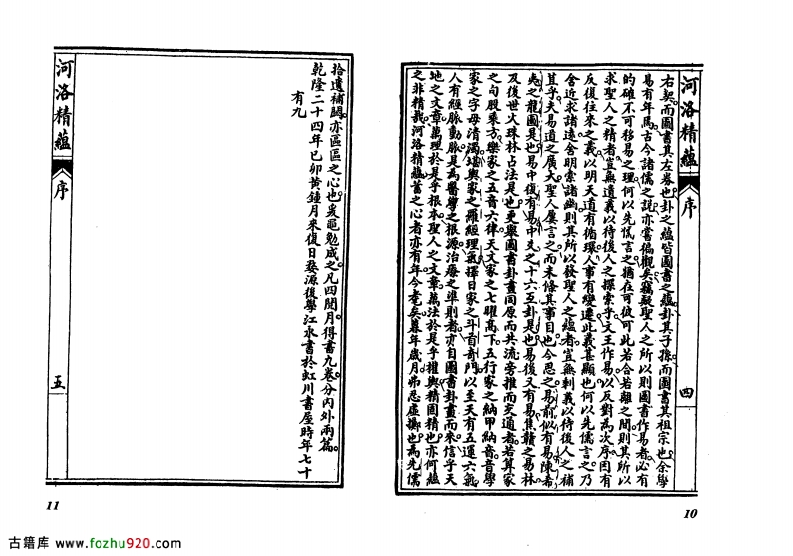 河洛精蘊
序
四
右契。而圖書其左券也。卦之蘊皆圖書之蘊。卦其子孫。而圖書其祖宗也。余學
易有年焉。古今諸儒之說。亦嘗徧觀矣。竊疑聖人之所以則圖書作易者。必有
的確不可移易之理。何以先儒言之。猶在可彼可此若合若離之間。則其所以
求聖人之精者。豈無遺義以待後人之探索乎。文王作易。以反對為次序。固有
反復往來之義。以明天道有循環。人事有變遷。此義甚顯也。何以先儒言之。乃
舍近求諸遠。舍明索諸幽。則其所以發聖人之蘊者。豈無剩義以待後人之補
苴乎。夫易道之廣大。聖人屢言之。而未條其事目也。今思之。易前似有易。陳希
夷之龍圖是也。易中復有易。中爻之十六互卦是也。易後又有易。焦贛之易林
及後世火珠林占法是也。更與圖書卦畫同原而共流。旁推而交通者。若算家
之句股乘方。樂家之五音六律。天文家之七曜高下。五行家之納甲納音。音學
家之字母清濁。堪輿家之羅經理氣。擇日家之斗首奇門。以至天有五運六氣。
人有經脈動脈。是為醫學之根源。治療之準則者。亦自圖書卦畫而來。信乎天
地之文章。萬理於是乎根本。聖人之文章。萬法於是乎權輿。精固精也。亦何蘊
之非精哉。河洛精蘊蓄之心者亦有年。今耄矣。暮年歲月。弗忍虛擲也。為先儒
10
河洛精蘊
序
五
拾遺補闕。亦區區之心也。爰黽勉成之。凡四閱月。得書九卷。分內外兩篇。
乾隆二十四年己卯黃鍾月來復日婺源後學江永書於虹川書屋時年七十
有九
11
古籍库 www.fozhu920.com